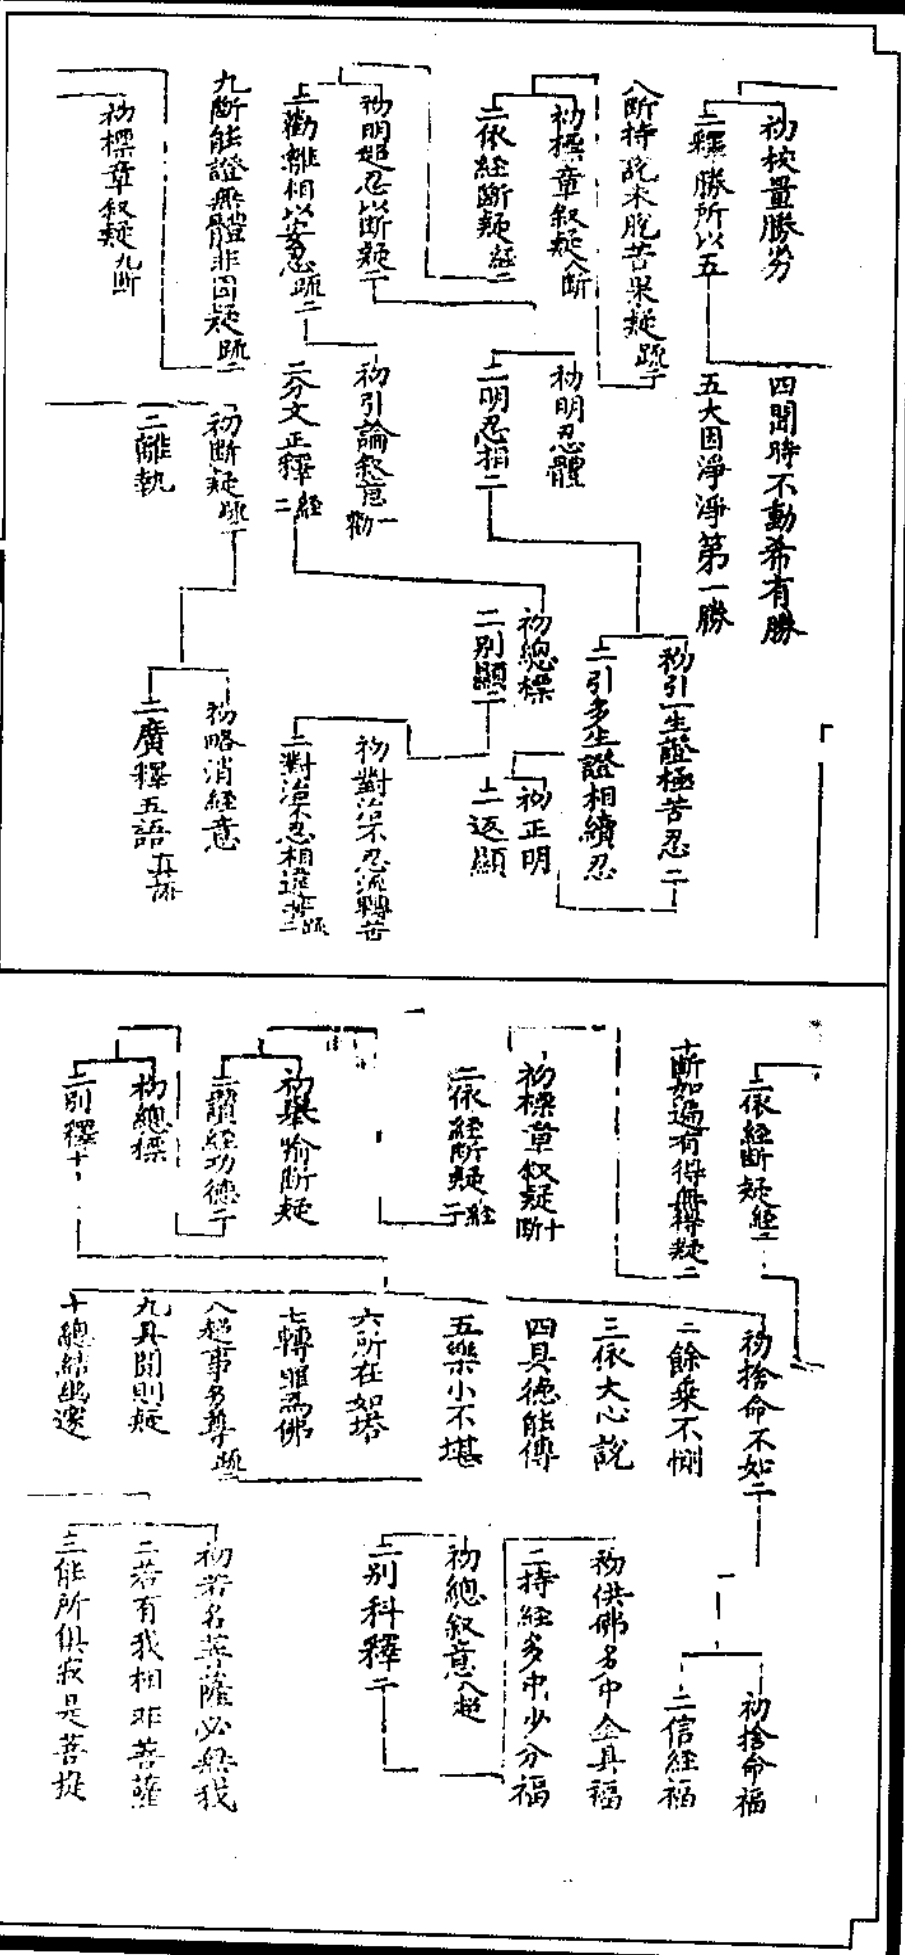 初校量勝劣
二釋勝所以五
四聞時不動希有勝
五大因淨淨第一勝
八斷持說未脫苦果疑 疏二
初標章敘疑 八斷
二依經斷疑 經二
初明忍體
二明忍相二
初引一生證極苦忍二
二引多生證相續忍
初正明
二返顯
初明超忍以斷疑二
二勸離相以安忍 疏二
初引論敘意 一勸
二分文正釋 經二
初總標
二別顯二
初對治不忍流轉苦
二對治不忍相違苦 疏二
九斷能證無體非因疑 疏二
初標章敘疑 九斷
初斷疑 疏二
二離執
初略消經意
二廣釋五語 真語
二依經斷疑 經二
十斷如遍有得無得疑二
初標章敘疑 十斷
二依經斷疑 經二
初舉喻斷疑
二讚經功德二
初總標
二別釋十
初捨命不如二
二餘乘不惻
三依大心說
四具德能傳
五樂小不堪
六所在如塔
七轉罪為佛
八超事多尊 疏二
九具聞則疑
十總結幽邃
初捨命福
二信經福
初供佛多中全具福
二持經多中少分福
初總敘意 八超
二別科釋二
初若名菩薩必無我
二若有我相非菩薩
三能所俱寂是菩提